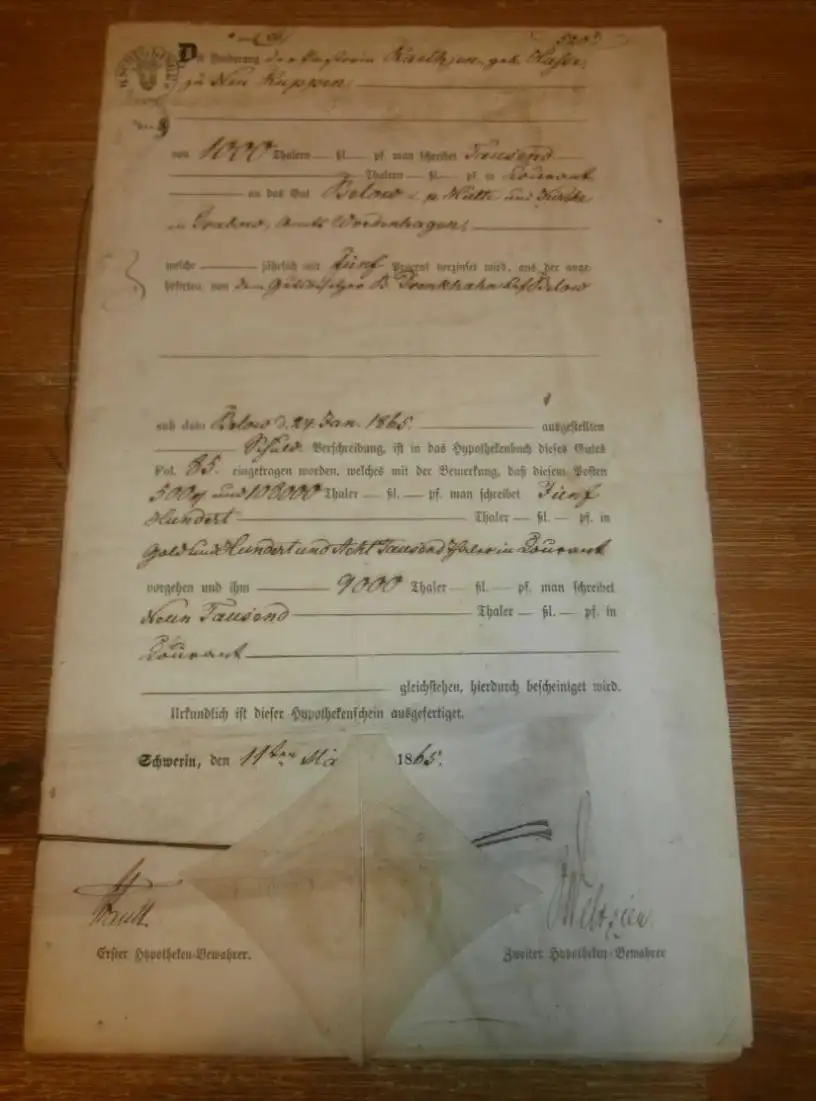 Die Forderung der Pastorin geb.
zu Neu
von 1000 Thalern — ßl. — pf. man schreibet Tausend
Thalern — ßl. — pf. in Courant
an das Gut Below c. p. Hütte und
in Amts Wredenhagen,
welche — jährlich mit fünf Procent verzinset wird, aus der ange-
hefteten, von dem Gutsbesitzer auf Below
sub dato Below d. 24 Jan. 1865. ausgestellten
Schuld Verschreibung, ist in das Hypothekenbuch dieses Gutes
Fol. 85. eingetragen worden, welches mit der Bemerkung, daß diesem Posten
500 und 108000 Thaler — ßl. — pf. man schreibet Fünf
Hundert — Thaler — ßl. — pf. in
Gold und Hundert und Acht Tausend Thaler in Courant
vorgehen und ihm — 9000 Thaler — ßl. — pf. man schreibet
Neun Tausend — Thaler — ßl. — pf. in
Courant
gleichstehen, hierdurch bescheiniget wird.
Urkundlich ist dieser Hypothekenschein ausgefertiget.
Schwerin, den 11ten 1865.
Erster Hypotheken-Bewahrer.
Zweiter Hypotheken-Bewahrer